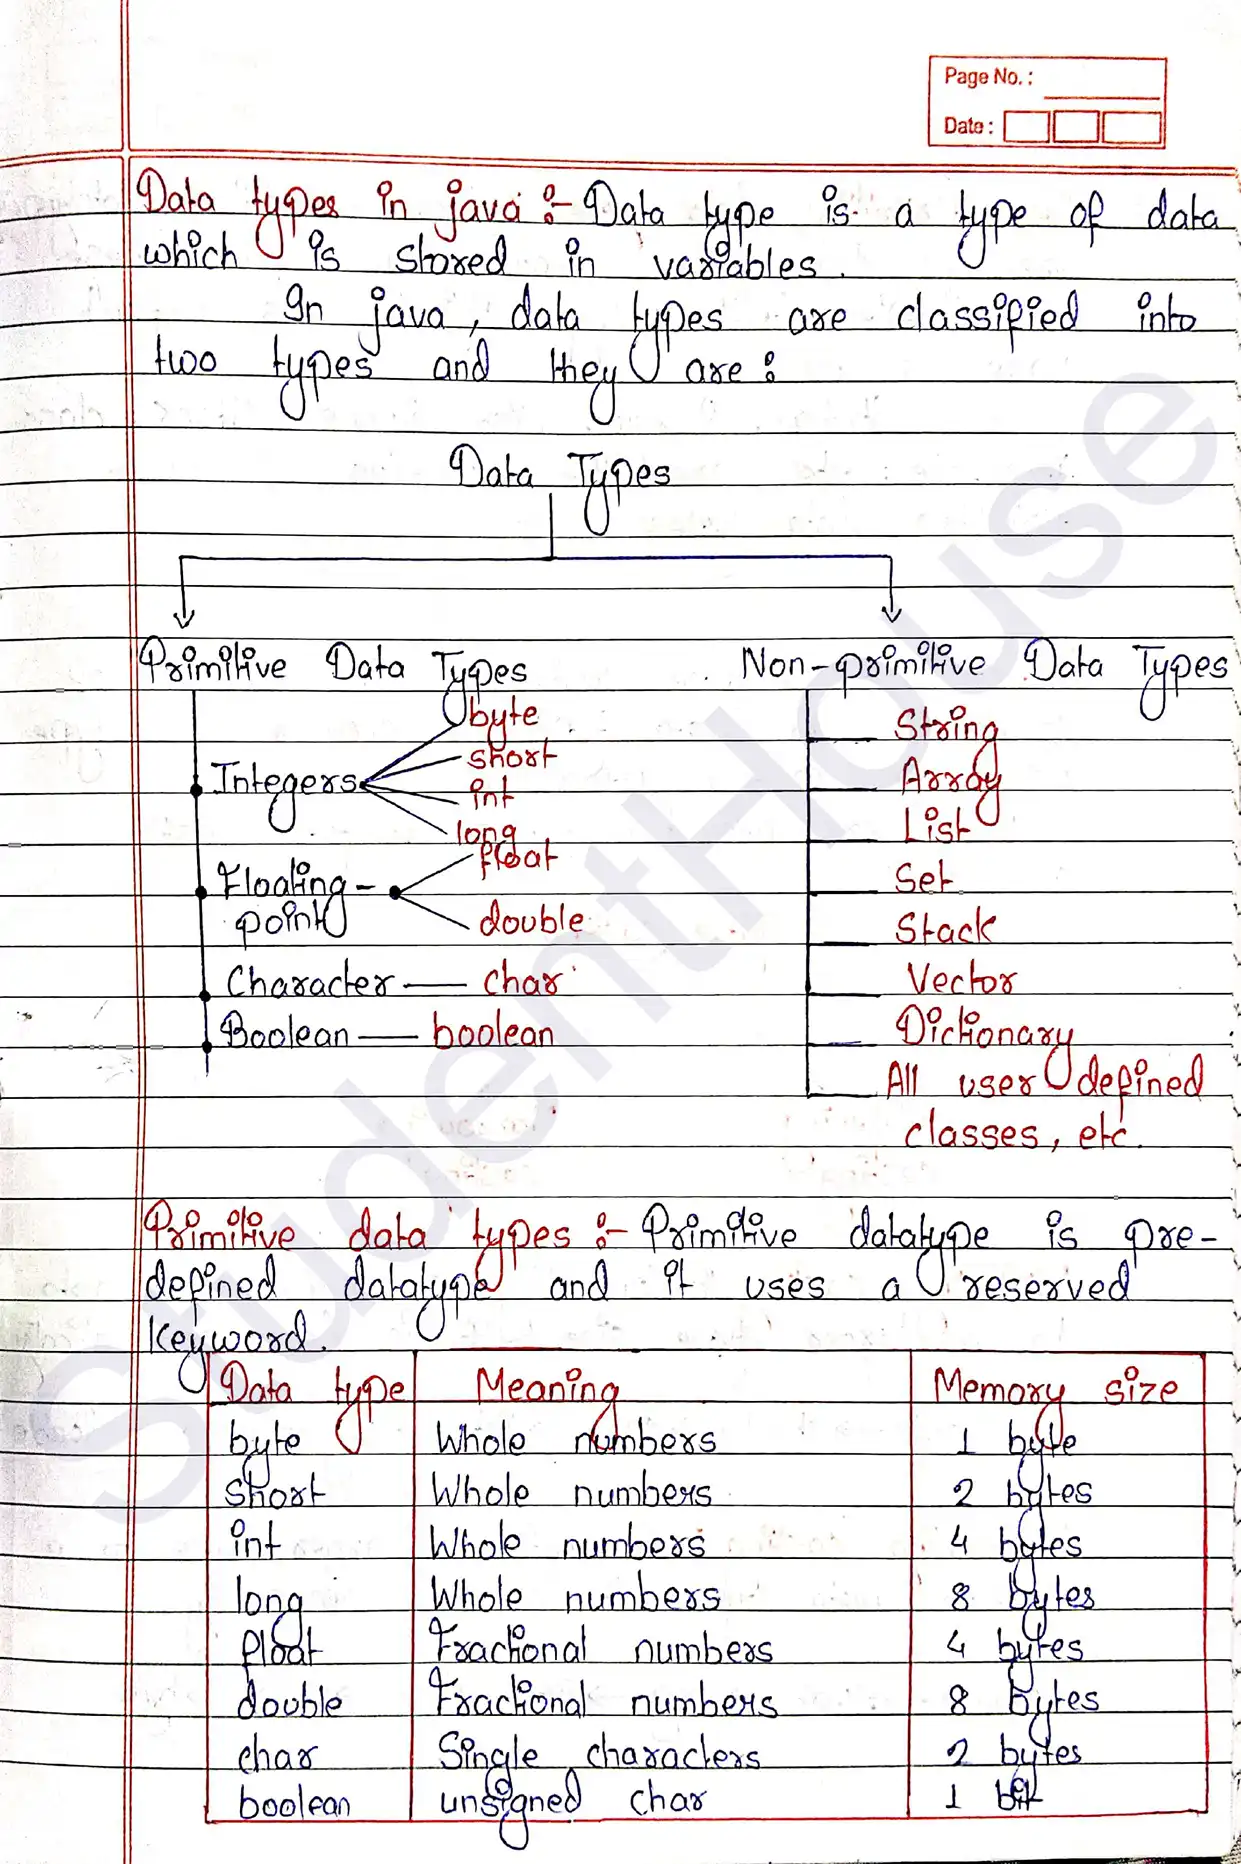 Page No. :
Date :
Data types in java :- Data type is a type of data
which is stored in variables.
In java, data types are classified into
two types and they are :
Data Types
Primitive Data Types
Non-primitive Data Types
Integers
byte
short
int
long
Floating-
point
float
double
Character — char
Boolean — boolean
String
Array
List
Set
Stack
Vector
Dictionary
All user defined
classes, etc.
Primitive data types :- Primitive datatype is pre-
defined datatype and it uses a reserved
keyword.
Data type Meaning Memory size
byte Whole numbers 1 byte
short Whole numbers 2 bytes
int Whole numbers 4 bytes
long Whole numbers 8 bytes
float Fractional numbers 4 bytes
double Fractional numbers 8 bytes
char Single characters 2 bytes
boolean unsigned char 1 bit
StudentHouse